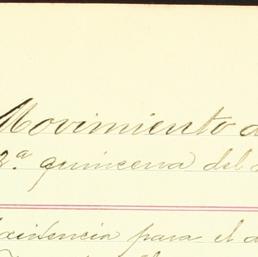 Movimiento d
2ª quincena del
Existencia para el d